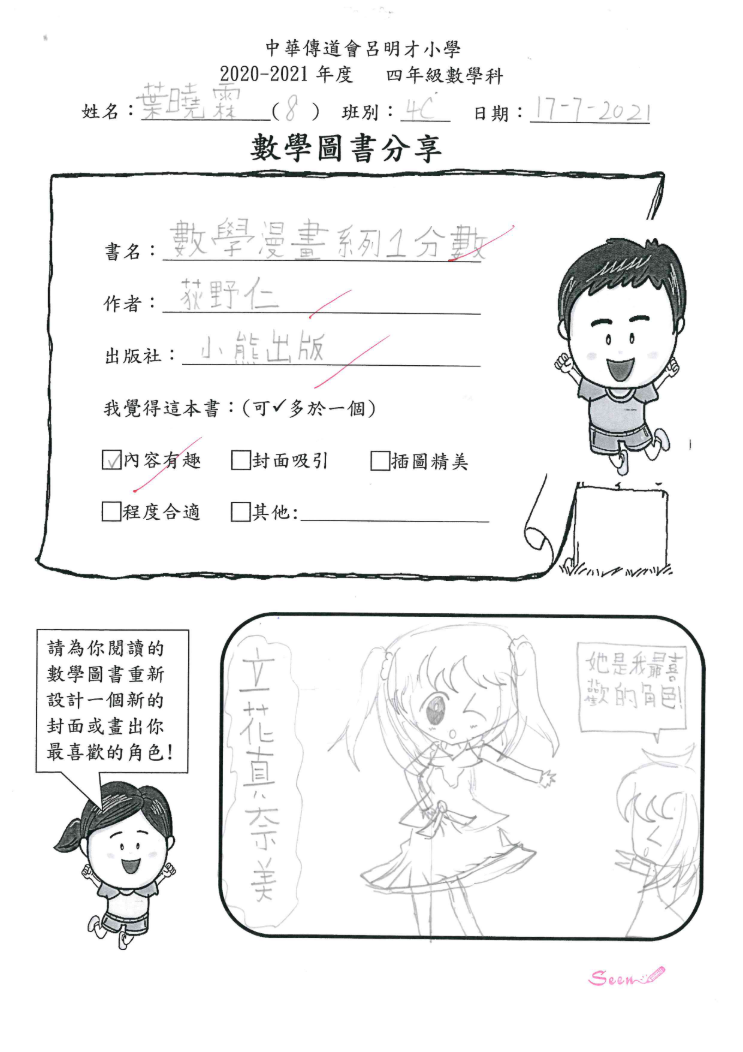 中華傳道會呂明才小學
2020-2021 年度 四年級數學科
姓名：葉曉霖(8) 班別：4C 日期：17-7-2021
數學圖書分享
書名：數學漫畫系列1分數
作者：荻野仁
出版社：小熊出版
我覺得這本書：(可✓多於一個)
☑內容有趣 □封面吸引 □插圖精美
□程度合適 □其他:
請為你閱讀的
數學圖書重新
設計一個新的
封面或畫出你
最喜歡的角色!
立花真奈美
她是我最喜
歡的角色!
Seen